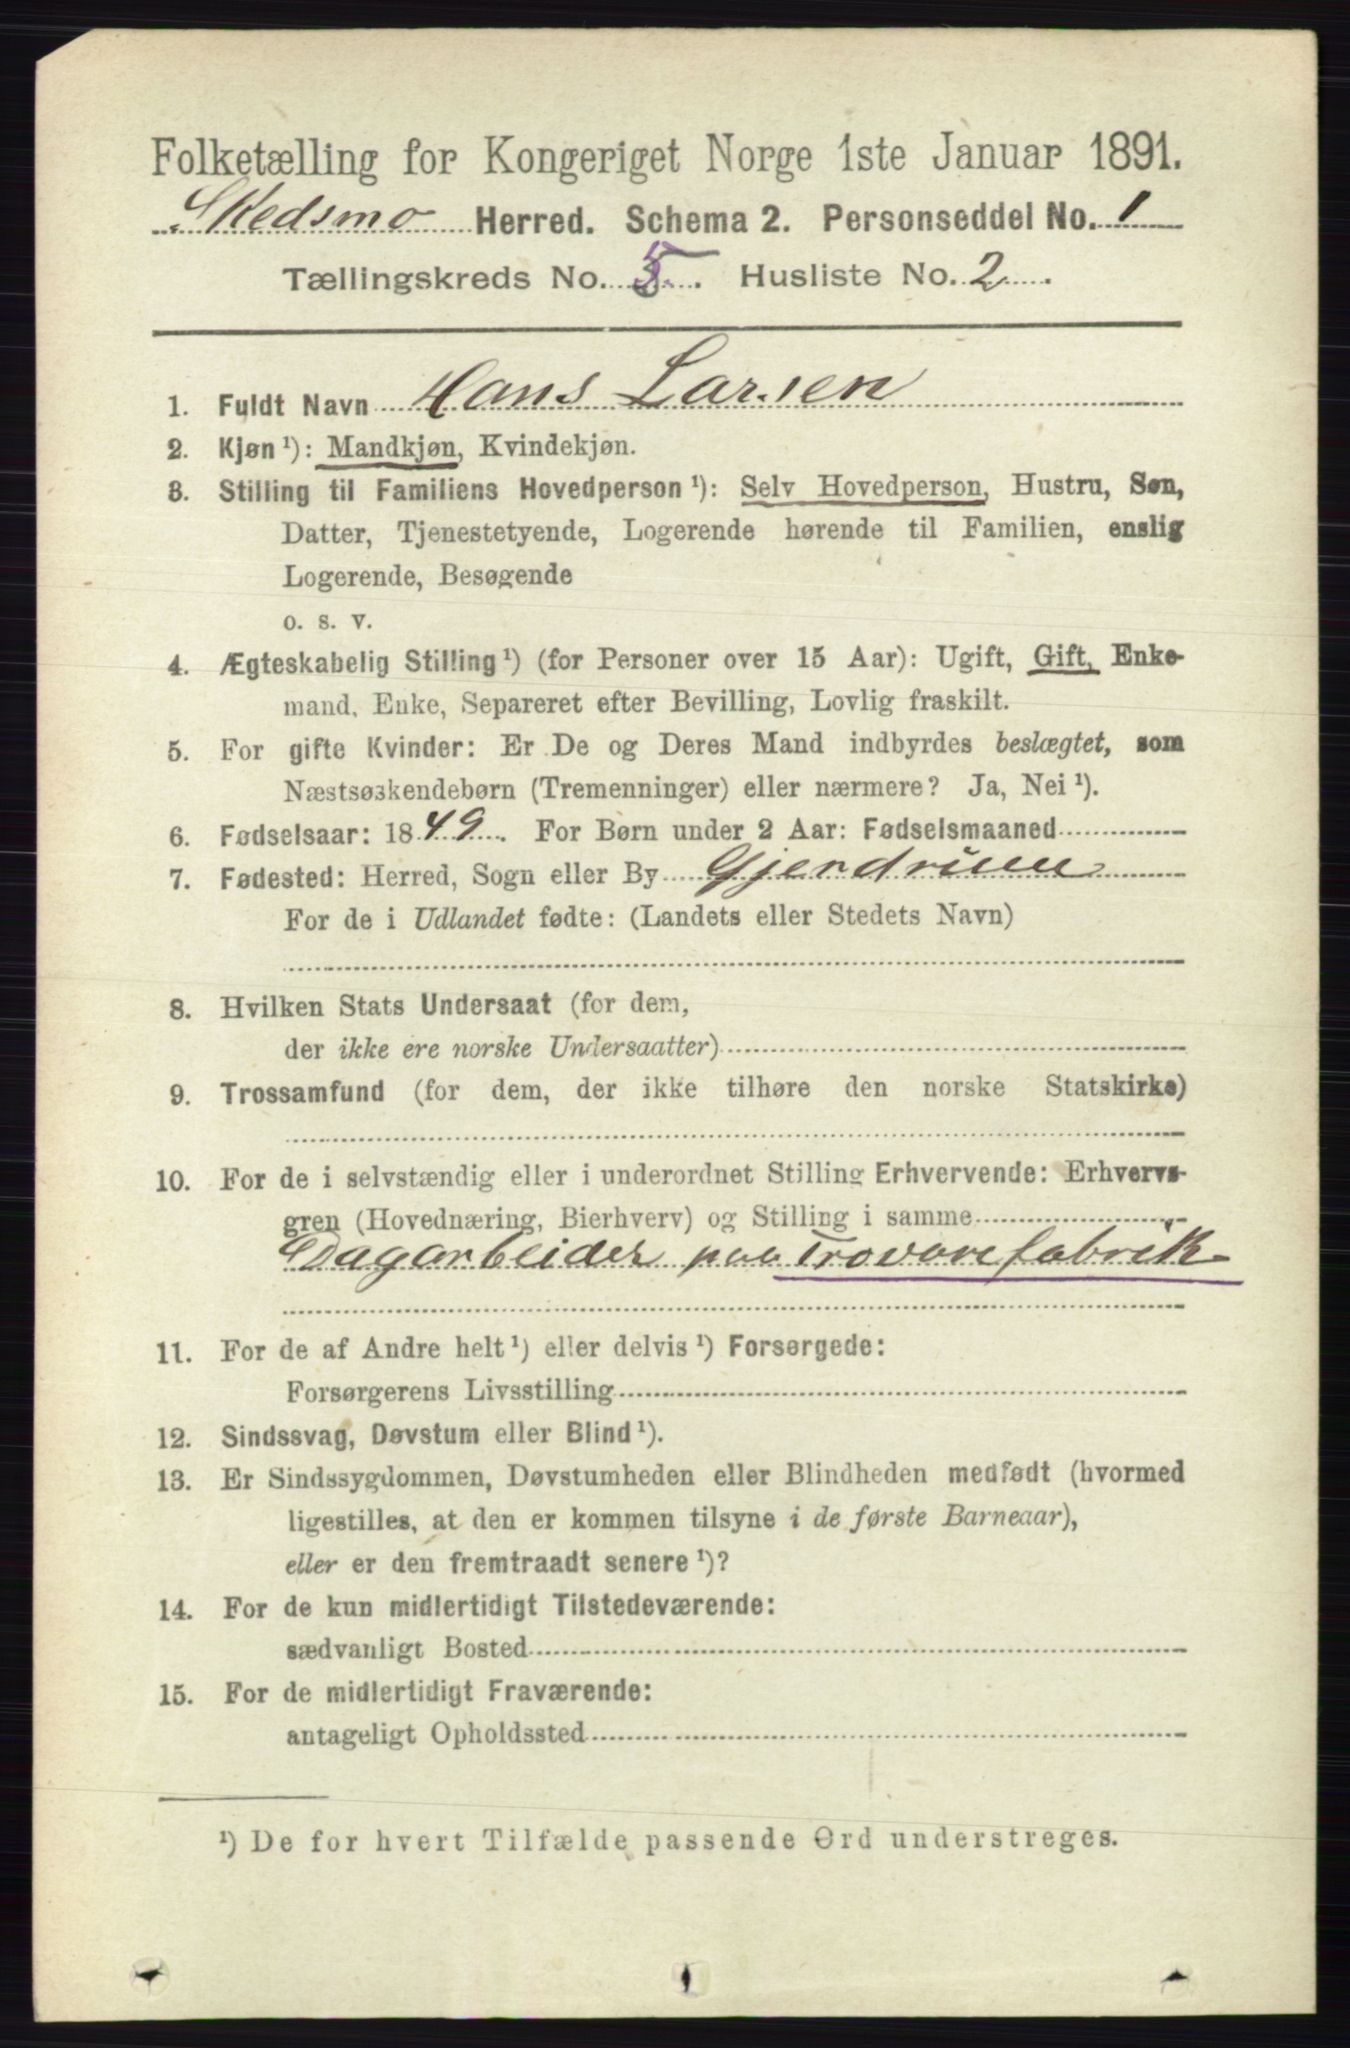 Folketælling for Kongeriget Norge 1ste Januar 1891.
Skedsmo Herred. Schema 2. Personseddel No. 1
Tællingskreds No. 5. Husliste No. 2
1. Fuldt Navn Hans Larsen
2. Kjøn ¹): Mandkjøn, Kvindekjøn.
3. Stilling til Familiens Hovedperson ¹): Selv Hovedperson, Hustru, Søn,
Datter, Tjenestetyende, Logerende hørende til Familien, enslig
Logerende, Besøgende
o. s. v.
4. Ægteskabelig Stilling ¹) (for Personer over 15 Aar): Ugift, Gift, Enke-
mand, Enke, Separeret efter Bevilling, Lovlig fraskilt.
5. For gifte Kvinder: Er De og Deres Mand indbyrdes beslægtet, som
Næstsøskendebørn (Tremenninger) eller nærmere? Ja, Nei ¹).
6. Fødselsaar: 1849. For Børn under 2 Aar: Fødselsmaaned
7. Fødested: Herred, Sogn eller By Gjerdrum
For de i Udlandet fødte: (Landets eller Stedets Navn)
8. Hvilken Stats Undersaat (for dem,
der ikke ere norske Undersaatter)
9. Trossamfund (for dem, der ikke tilhøre den norske Statskirke)
10. For de i selvstændig eller i underordnet Stilling Erhvervende: Erhvervs-
gren (Hovednæring, Bierhverv) og Stilling i samme
Dagarbeider paa Trovarefabrik
11. For de af Andre helt ¹) eller delvis ¹) Forsørgede:
Forsørgerens Livsstilling
12. Sindssvag, Døvstum eller Blind ¹).
13. Er Sindssygdommen, Døvstumheden eller Blindheden medfødt (hvormed
ligestilles, at den er kommen tilsyne i de første Barneaar),
eller er den fremtraadt senere ¹)?
14. For de kun midlertidigt Tilstedeværende:
sædvanligt Bosted
15. For de midlertidigt Fraværende:
antageligt Opholdssted
¹) De for hvert Tilfælde passende Ord understreges.